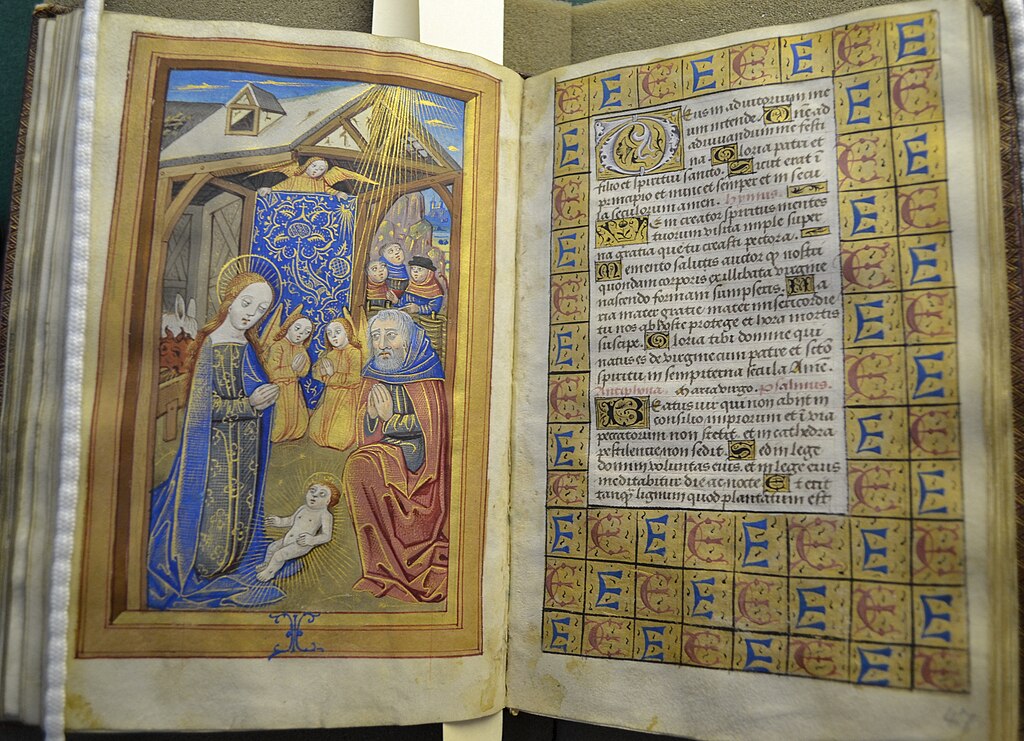 Deus in adiutorium me
um intende. Dñe ad
adiuvandum me festi
na. Gloria patri et
filio et spiritui sancto. Sicut erat ī
principio et nunc et semper et in secu
la seculorum amen. Hymnus.
Veni creator spiritus mentes
tuorum visita imple super
na gratia que tu creasti pectora.
Memento salutis auctor qͥ nostri
quondam corporis ex illibata virgine
nascendo formam sumpseris. Ma
ria mater gratie mater misericordie
tu nos ab hoste protege et hora mortis
suscipe. Gloria tibi domine qui
natus es de virgine cum patre et scto
spiritu in sempiterna secula Ame.
Antiphona. Maria virgo. psalmus.
Beatus vir qui non abiit in
consilio impiorum et ī via
peccatorum non stetit. et in cathedra
pestilencie non sedit. Sed in lege
domini voluntas eius. et in lege eius
meditabitur die ac nocte. Et erit
tanqͣ lignum quod plantatum est
47